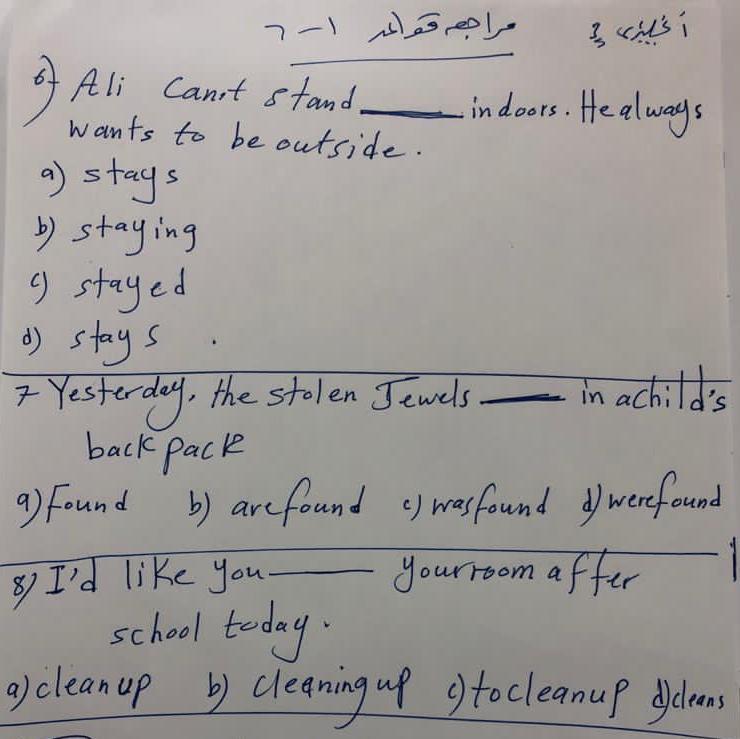 أنجليزي 3 مراجعه قواعد 1-6
6) Ali Can't stand _____ indoors. He always
wants to be outside.
a) stays
b) staying
c) stayed
d) stays .
7 Yesterday, the stolen Jewels _____ in a child's
back pack
a) found b) are found c) was found d) were found
8) I'd like you _____ your room after
school today.
a) clean up b) cleaning up c) to clean up d) cleans